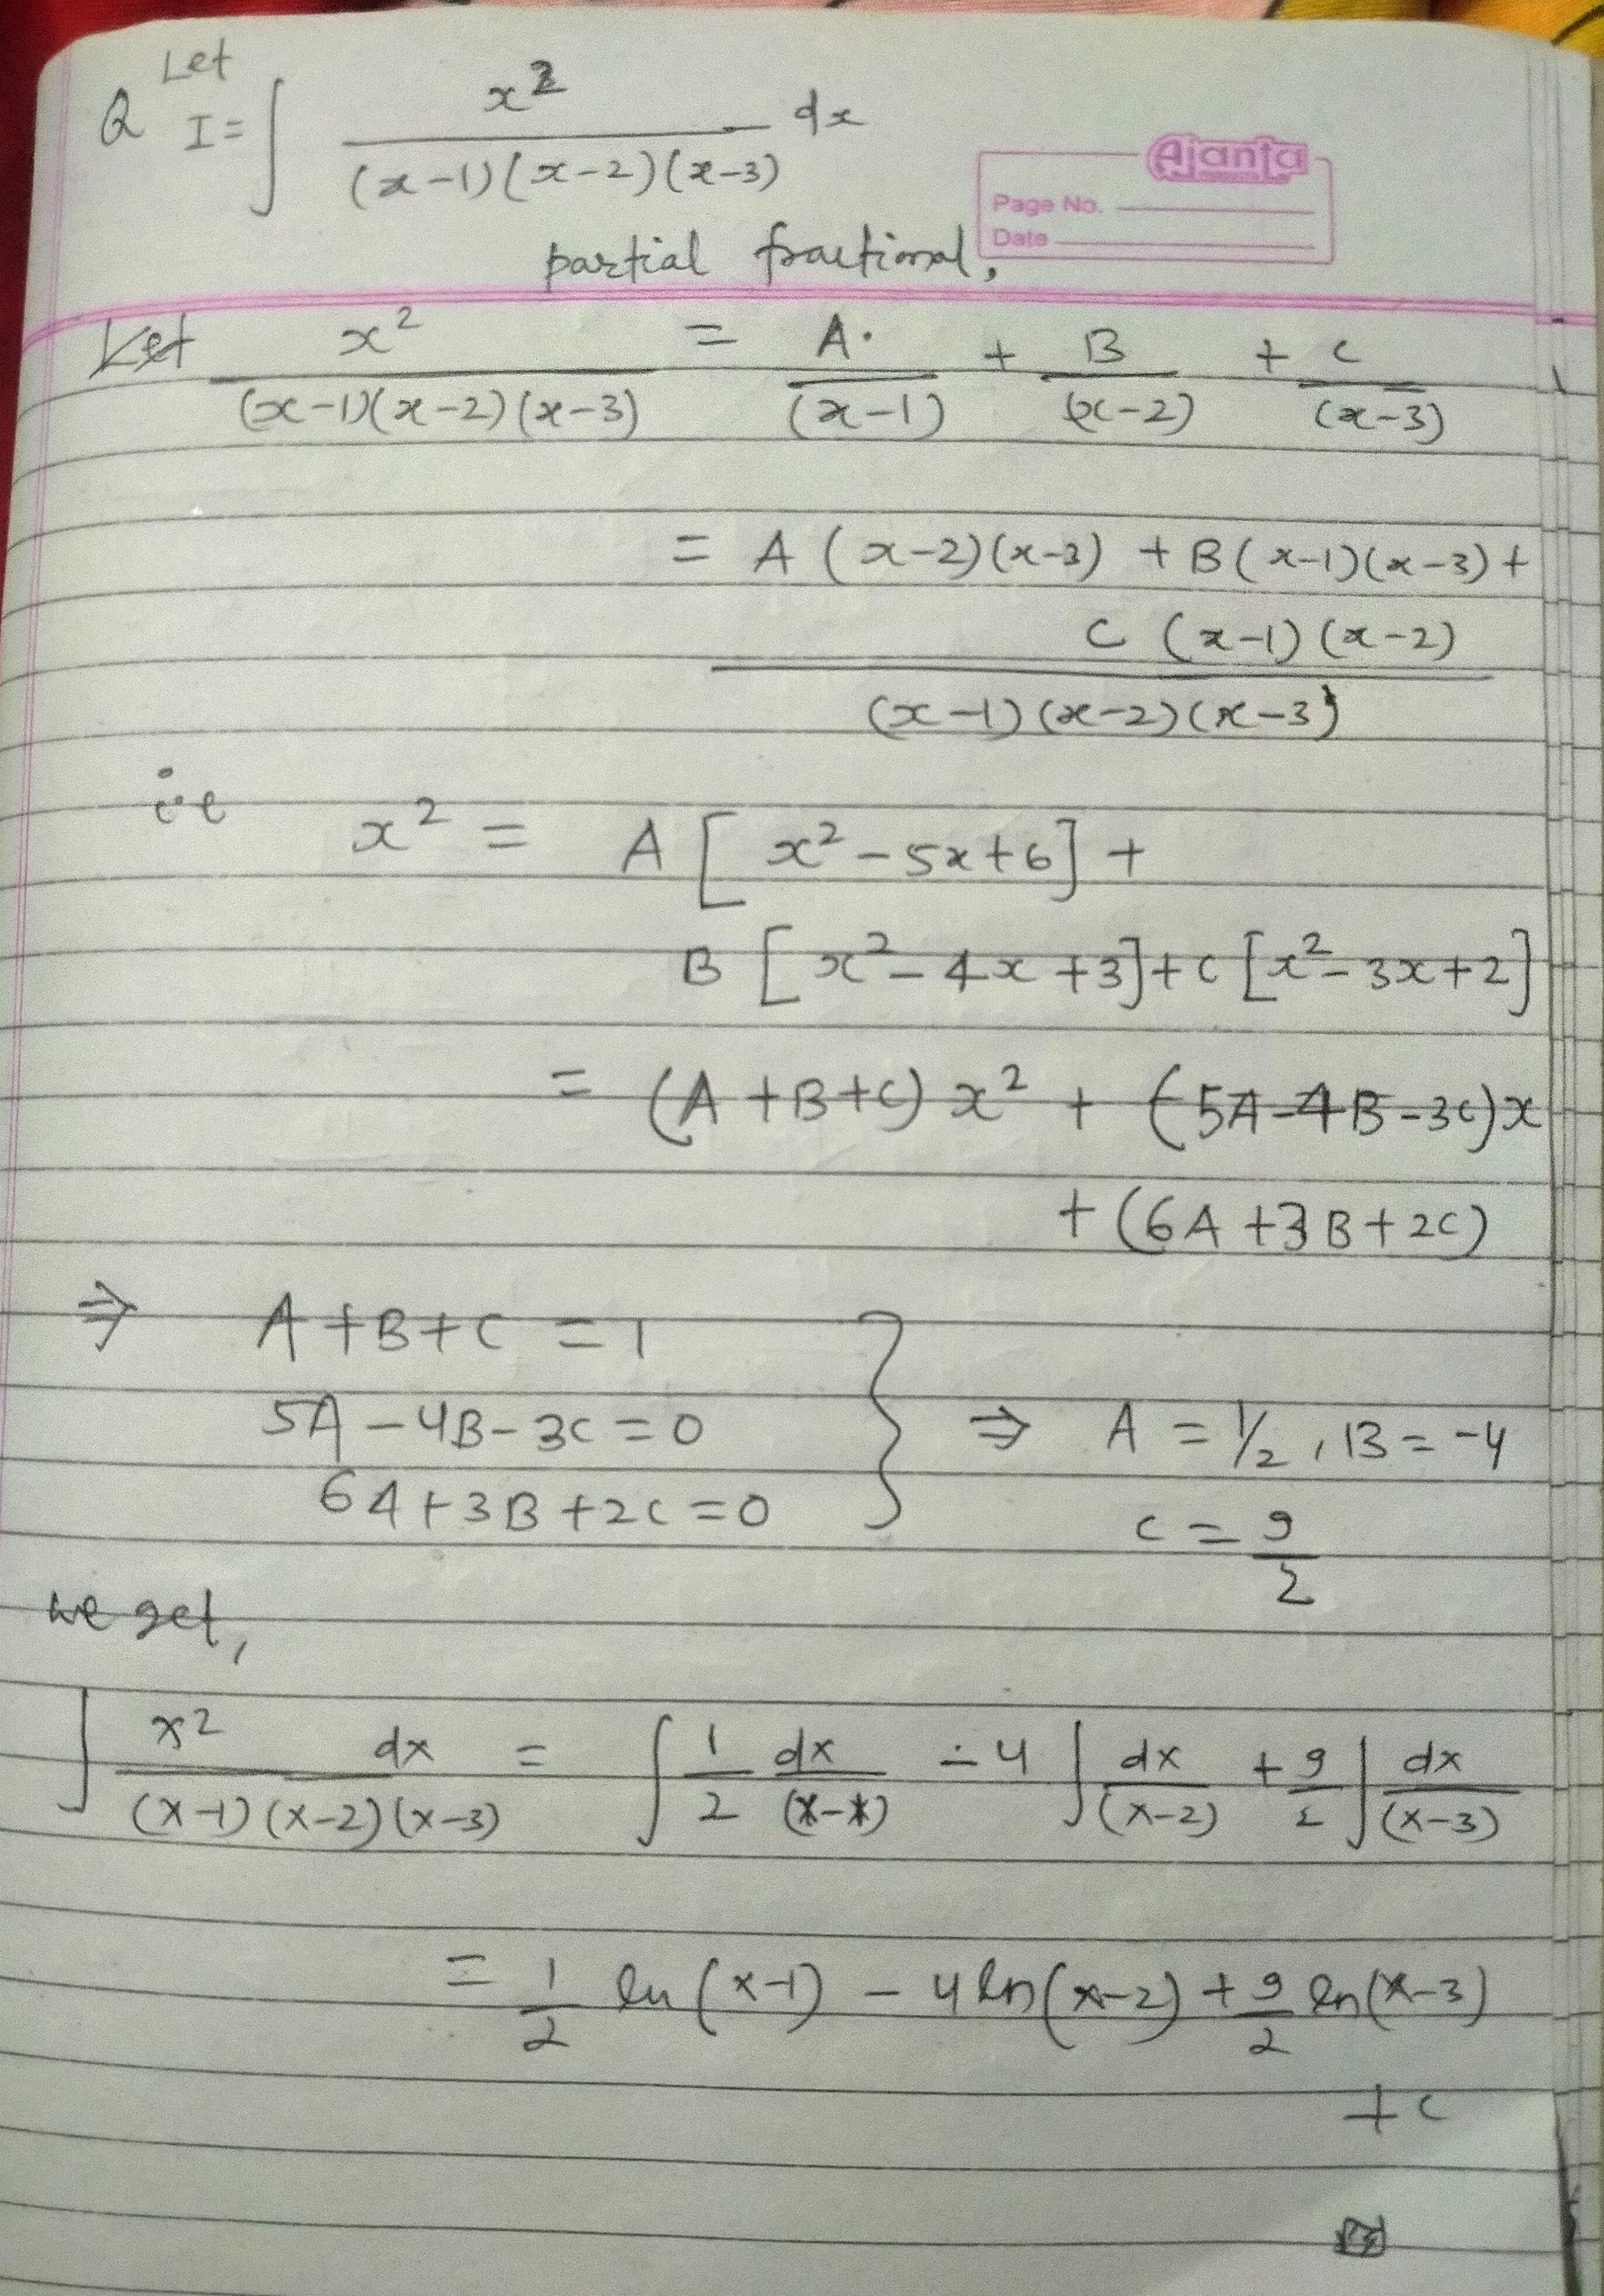 Let
Q I = ∫ x² / (x-1)(x-2)(x-3) dx
Ajanta
Page No.
Date
partial fractional,
Let x² / (x-1)(x-2)(x-3) = A. / (x-1) + B / (x-2) + C / (x-3)
= A (x-2)(x-3) + B(x-1)(x-3) +
C (x-1)(x-2)
(x-1)(x-2)(x-3)
i.e x² = A [x²-5x+6] +
B [x²-4x+3] + C [x²-3x+2]
= (A+B+C) x² + (-5A-4B-3C)x
+ (6A+3B+2C)
⇒ A+B+C = 1
5A-4B-3C = 0 } ⇒ A = 1/2, B = -4
6A+3B+2C = 0 C = 9/2
we get,
∫ x² dx / (x-1)(x-2)(x-3) = ∫ 1/2 dx/(x-x) - 4 ∫ dx/(x-2) + 9/2 ∫ dx/(x-3)
= 1/2 ln(x-1) - 4 ln(x-2) + 9/2 ln(x-3)
+ c